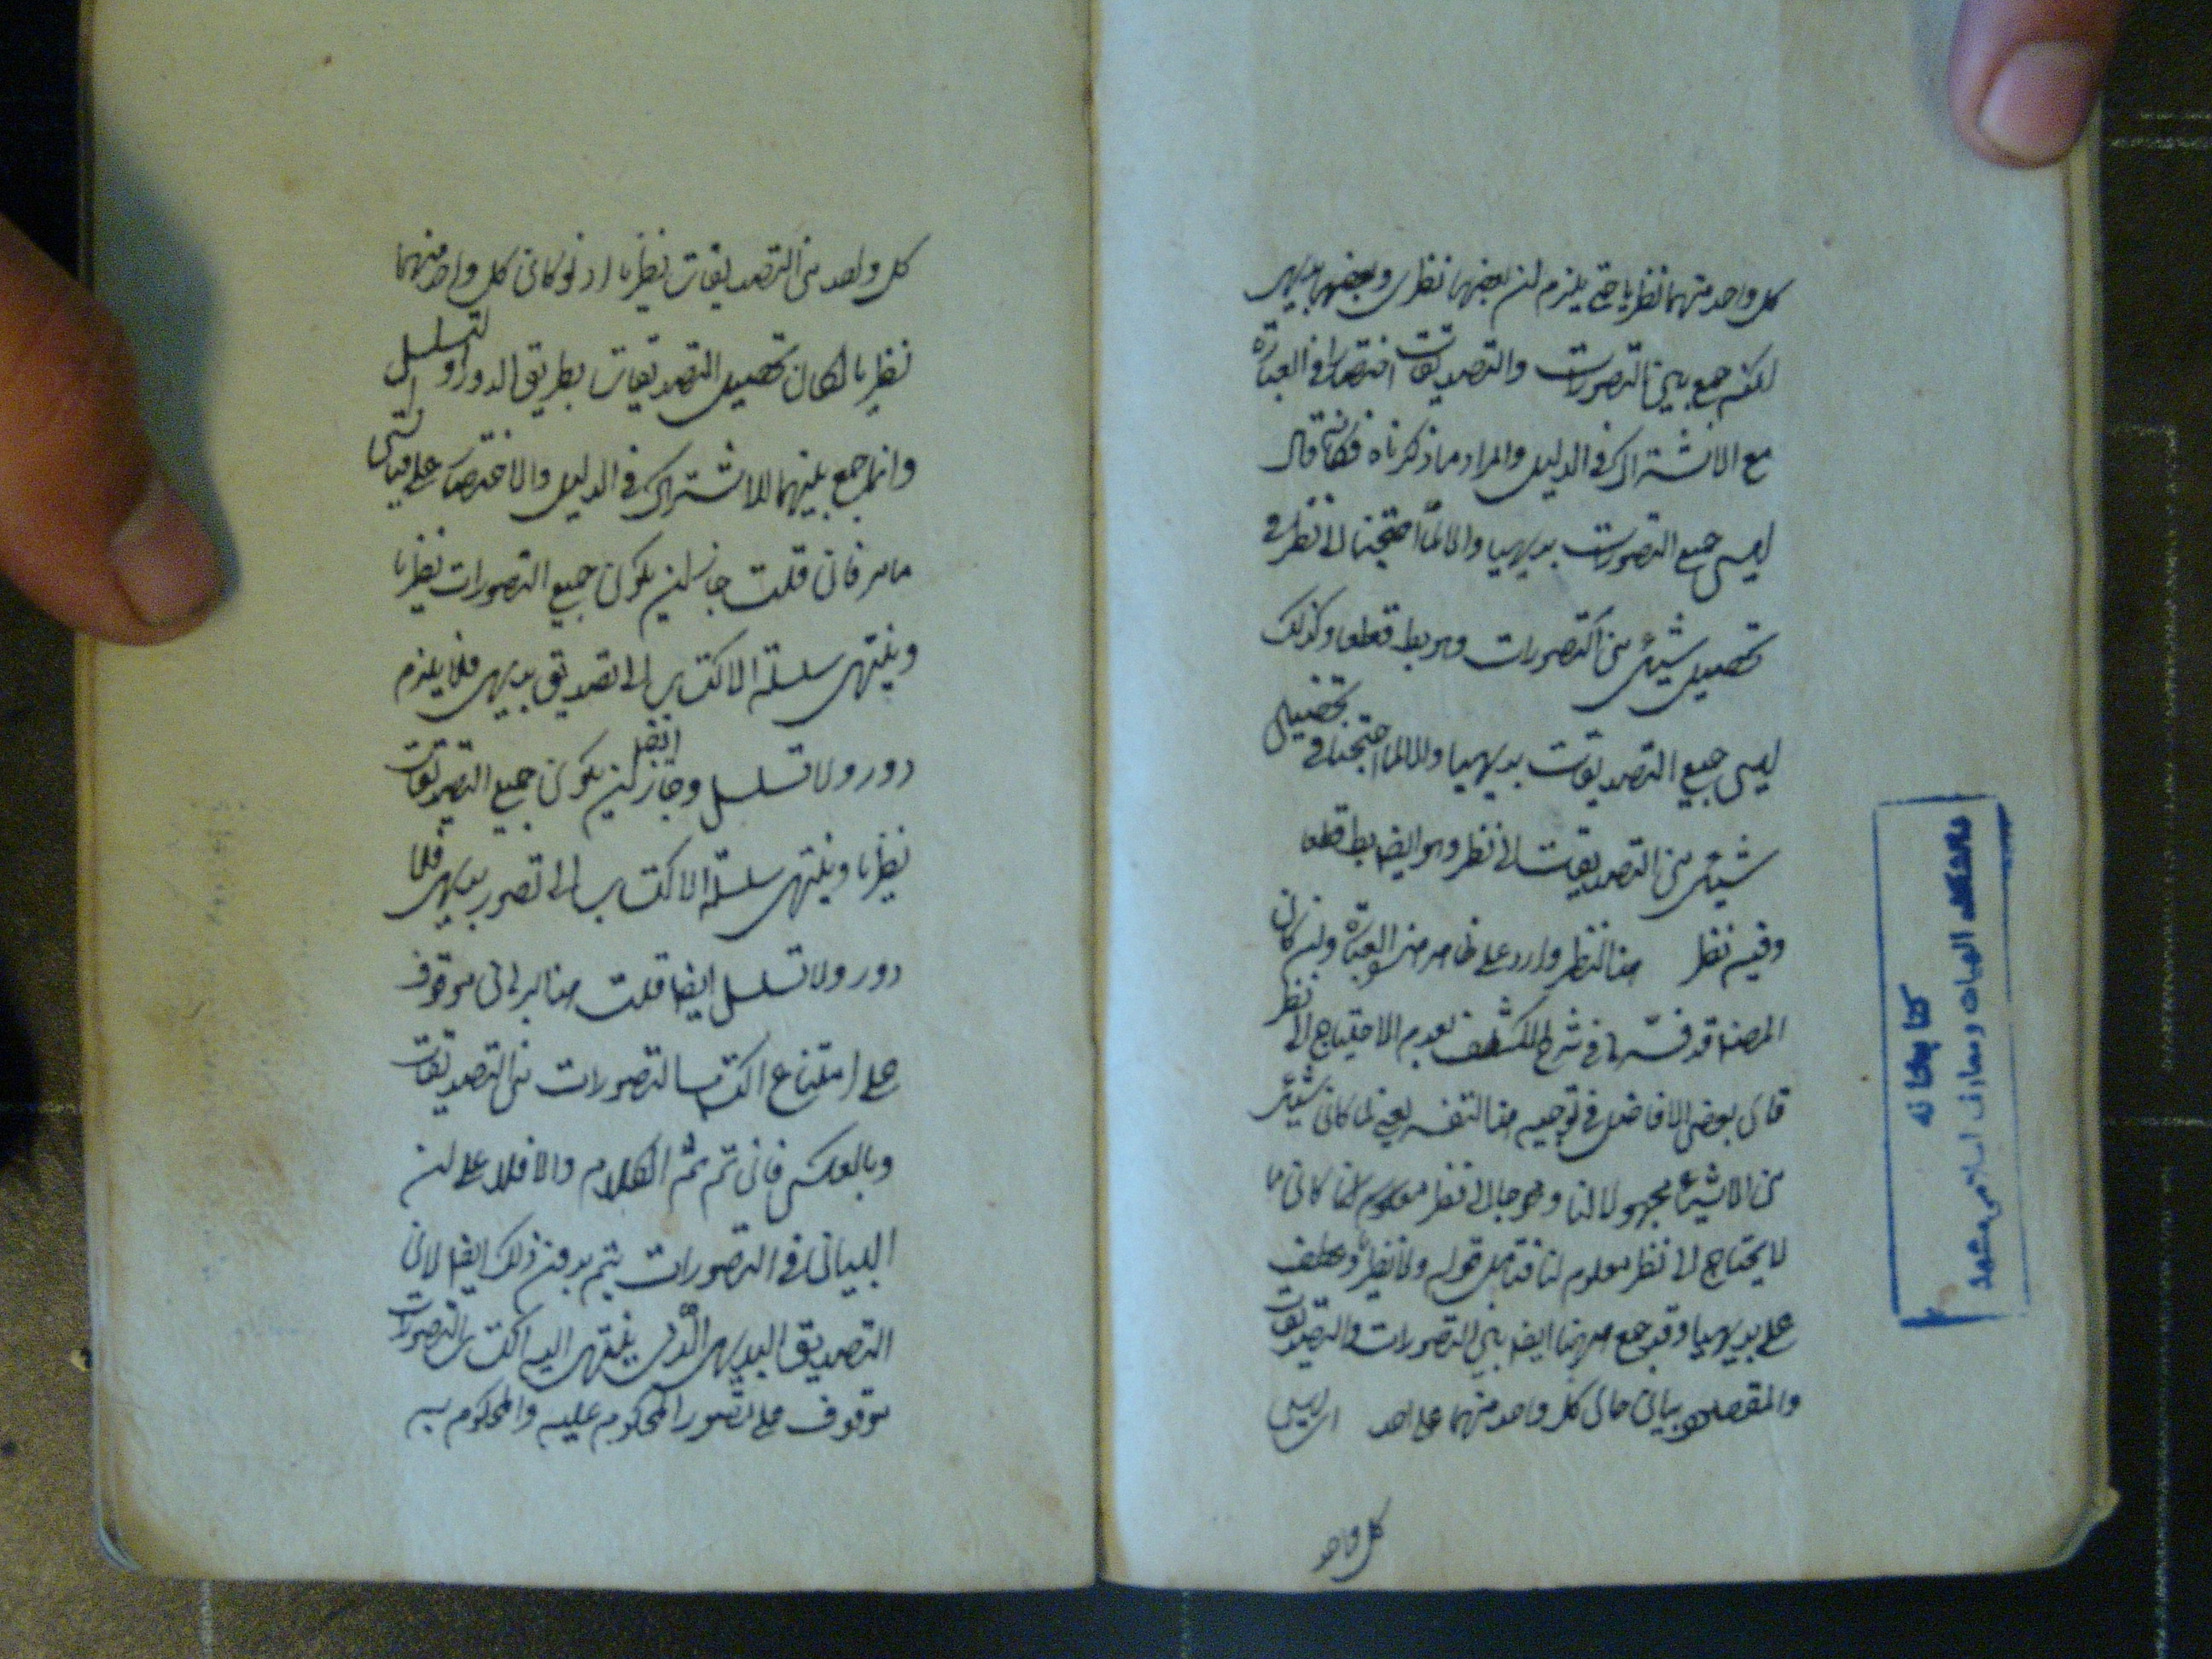 كل واحد منهما نظريا حتى يلزم ان بعضها نظرى وبعضها بديهى
لكنه جمع بين التصورات والتصديقات اختصارا فى العبارة
مع الاشتراك فى الدليل والمراد ما ذكرناه فكانه قال
ليس جميع التصورات بديهيا والا لما احتجنا الى نظر فى
تحصيل شيئ من التصورات وهو بط قطعا وكذلك
ليس جميع التصديقات بديهيا والا لما احتجنا فى تحصيل
شيئ من التصديقات الى نظر وهو ايضا بط قطعا
وفيه نظر هذا النظر وارد على ظاهر هذه العبارة وان كان
المصنف قد فسرها فى شرح الكشف بعدم الاحتياج الى نظر
قال بعض الافاضل فى توجيه هذا التفسير يعنى لما كان شيئ
من الاشياء مجهولا لنا ومحوجا الى نظر معلوم لنا كان ما
لا يحتاج الى نظر معلوم لنا فتامل قوله ولا نظريا وعطف
على بديهيا وقد جمع ههنا ايضا بين التصورات والتصديقات
والمقصود بيان حال كل واحد منهما على حده اى ليس
كل واحد
كل واحد من التصديقات نظريا اذ لو كان كل واحد منهما
نظريا لكان تحصيل التصديقات بطريق الدور او التسلسل
وانما جمع بينهما للاشتراك فى الدليل والاختصار على قياس
ما مر فان قلت جاز ان يكون جميع التصورات نظريا
وينتهى سلسلة الاكتساب الى تصديق بديهى فلا يلزم
دور ولا تسلسل وجاز ايضا ان يكون جميع التصديقات
نظريا وينتهى سلسلة الاكتساب الى تصور بديهى فلا
دور ولا تسلسل ايضا قلت هذا البرهان موقوف
على امتناع اكتساب التصورات من التصديقات
وبالعكس فان تم تم الكلام والا فلا على ان
البيان فى التصورات يتم بدون ذلك ايضا لان
التصديق البديهى الذى ينتهى اليه اكتساب التصورات
موقوف على تصور المحكوم عليه والمحكوم به
كتابخانه
دانشكده الهيات ومعارف اسلامى مشهد